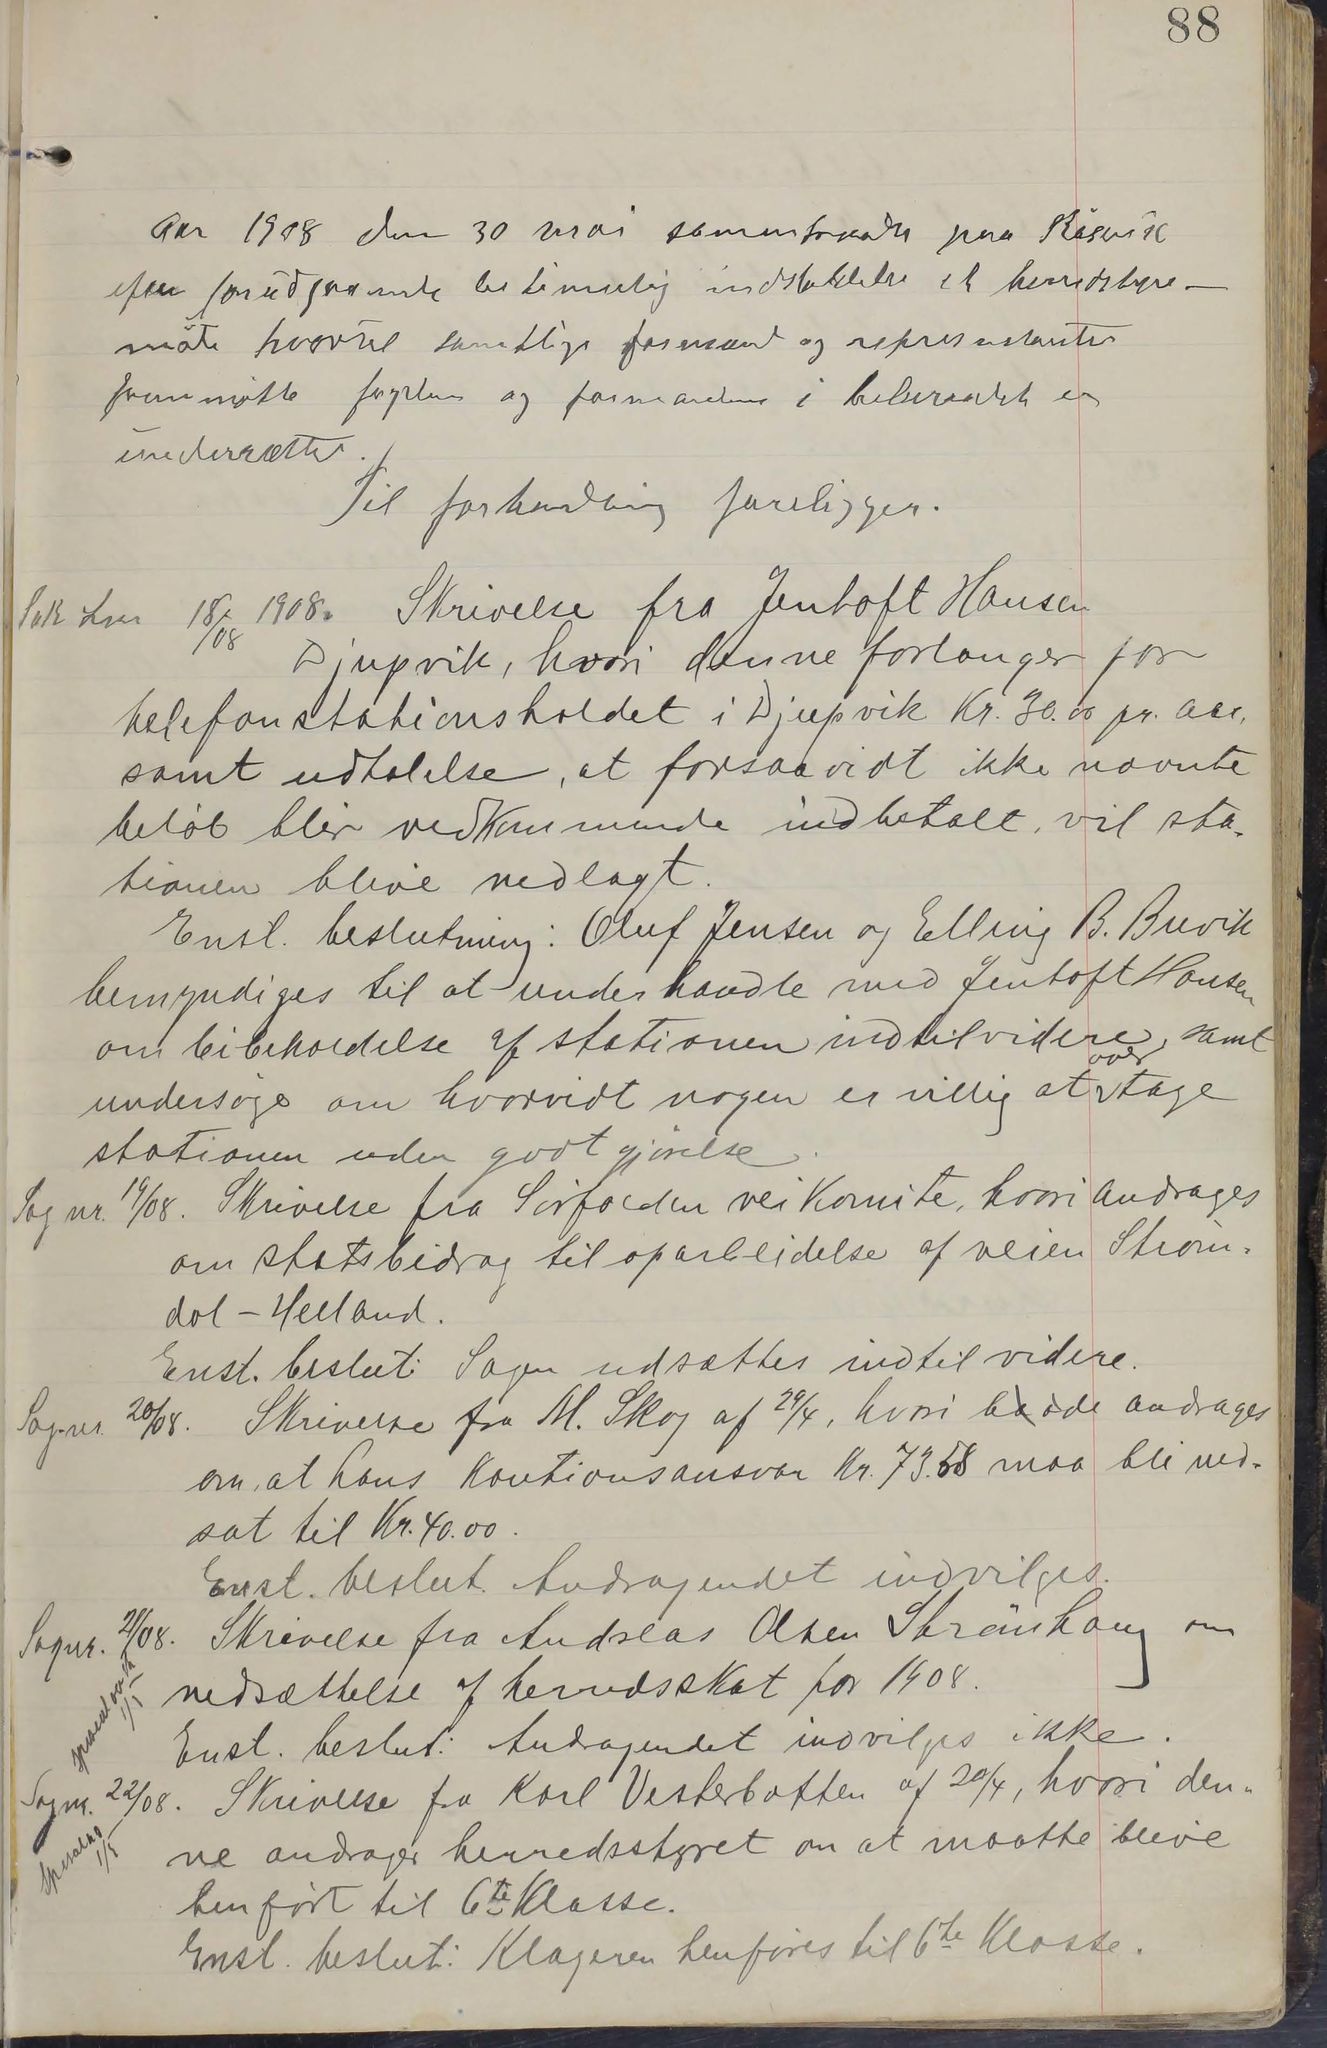 88
Aar 1908 den 30 mai sammentraadte paa Røsvik
efter forudgaaende bestemmelig indkaldelse et herredstyre-
møte hvortil samtlige formænd og representanter
fremmøtte fogden og formanden i
underrettet.
Til forhandling foreligger.
Sak 18/08 1908. Skrivelse fra Jentoft Hansen
Djupvik, hvori denne forlanger for
telefonstationsholdet i Djupvik Kr. 30.00 pr. aar,
samt udtalelse, at forsaavidt ikke nævnte
beløb blir vedkommende indbetalt, vil sta-
tionen blive nedlagt.
Enst. beslutning: Oluf Jensen og Elling B. Buvik
bemyndiges til at underhandle med Jentoft Hansen
om bibeholdelse af stationen indtilvidere, samt
undersøge om hvorvidt nogen er villig at overtage
stationen uden godtgjørelse.
Sag nr. 19/08. Skrivelse fra Sørfolden veikomite, hvori andrages
om statsbidrag til oparbeidelse af veien Strøm-
dal - Helland.
Enst. beslut: Sagen udsættes indtil videre.
Sag nr. 20/08. Skrivelse fra M. Skog af 29/4, hvori både andrages
om, at hans kautionsansvar Kr. 73.58 maa bli ned-
sat til Kr. 40.00.
Enst. beslut. Andragendet indvilges.
Sagnr. 21/08. Skrivelse fra Andreas Olsen Strømhaug om
nedsættelse af herredsskat for 1908.
Enst. beslut: Andragendet indvilges ikke.
Sagnr. 22/08. Skrivelse fra Karl Vesterbotten af 20/4, hvori den-
ne andrager herredsstyret om at maatte blive
henført til 6te Klasse.
Enst. beslut: Klageren henføres til 6te Klasse.